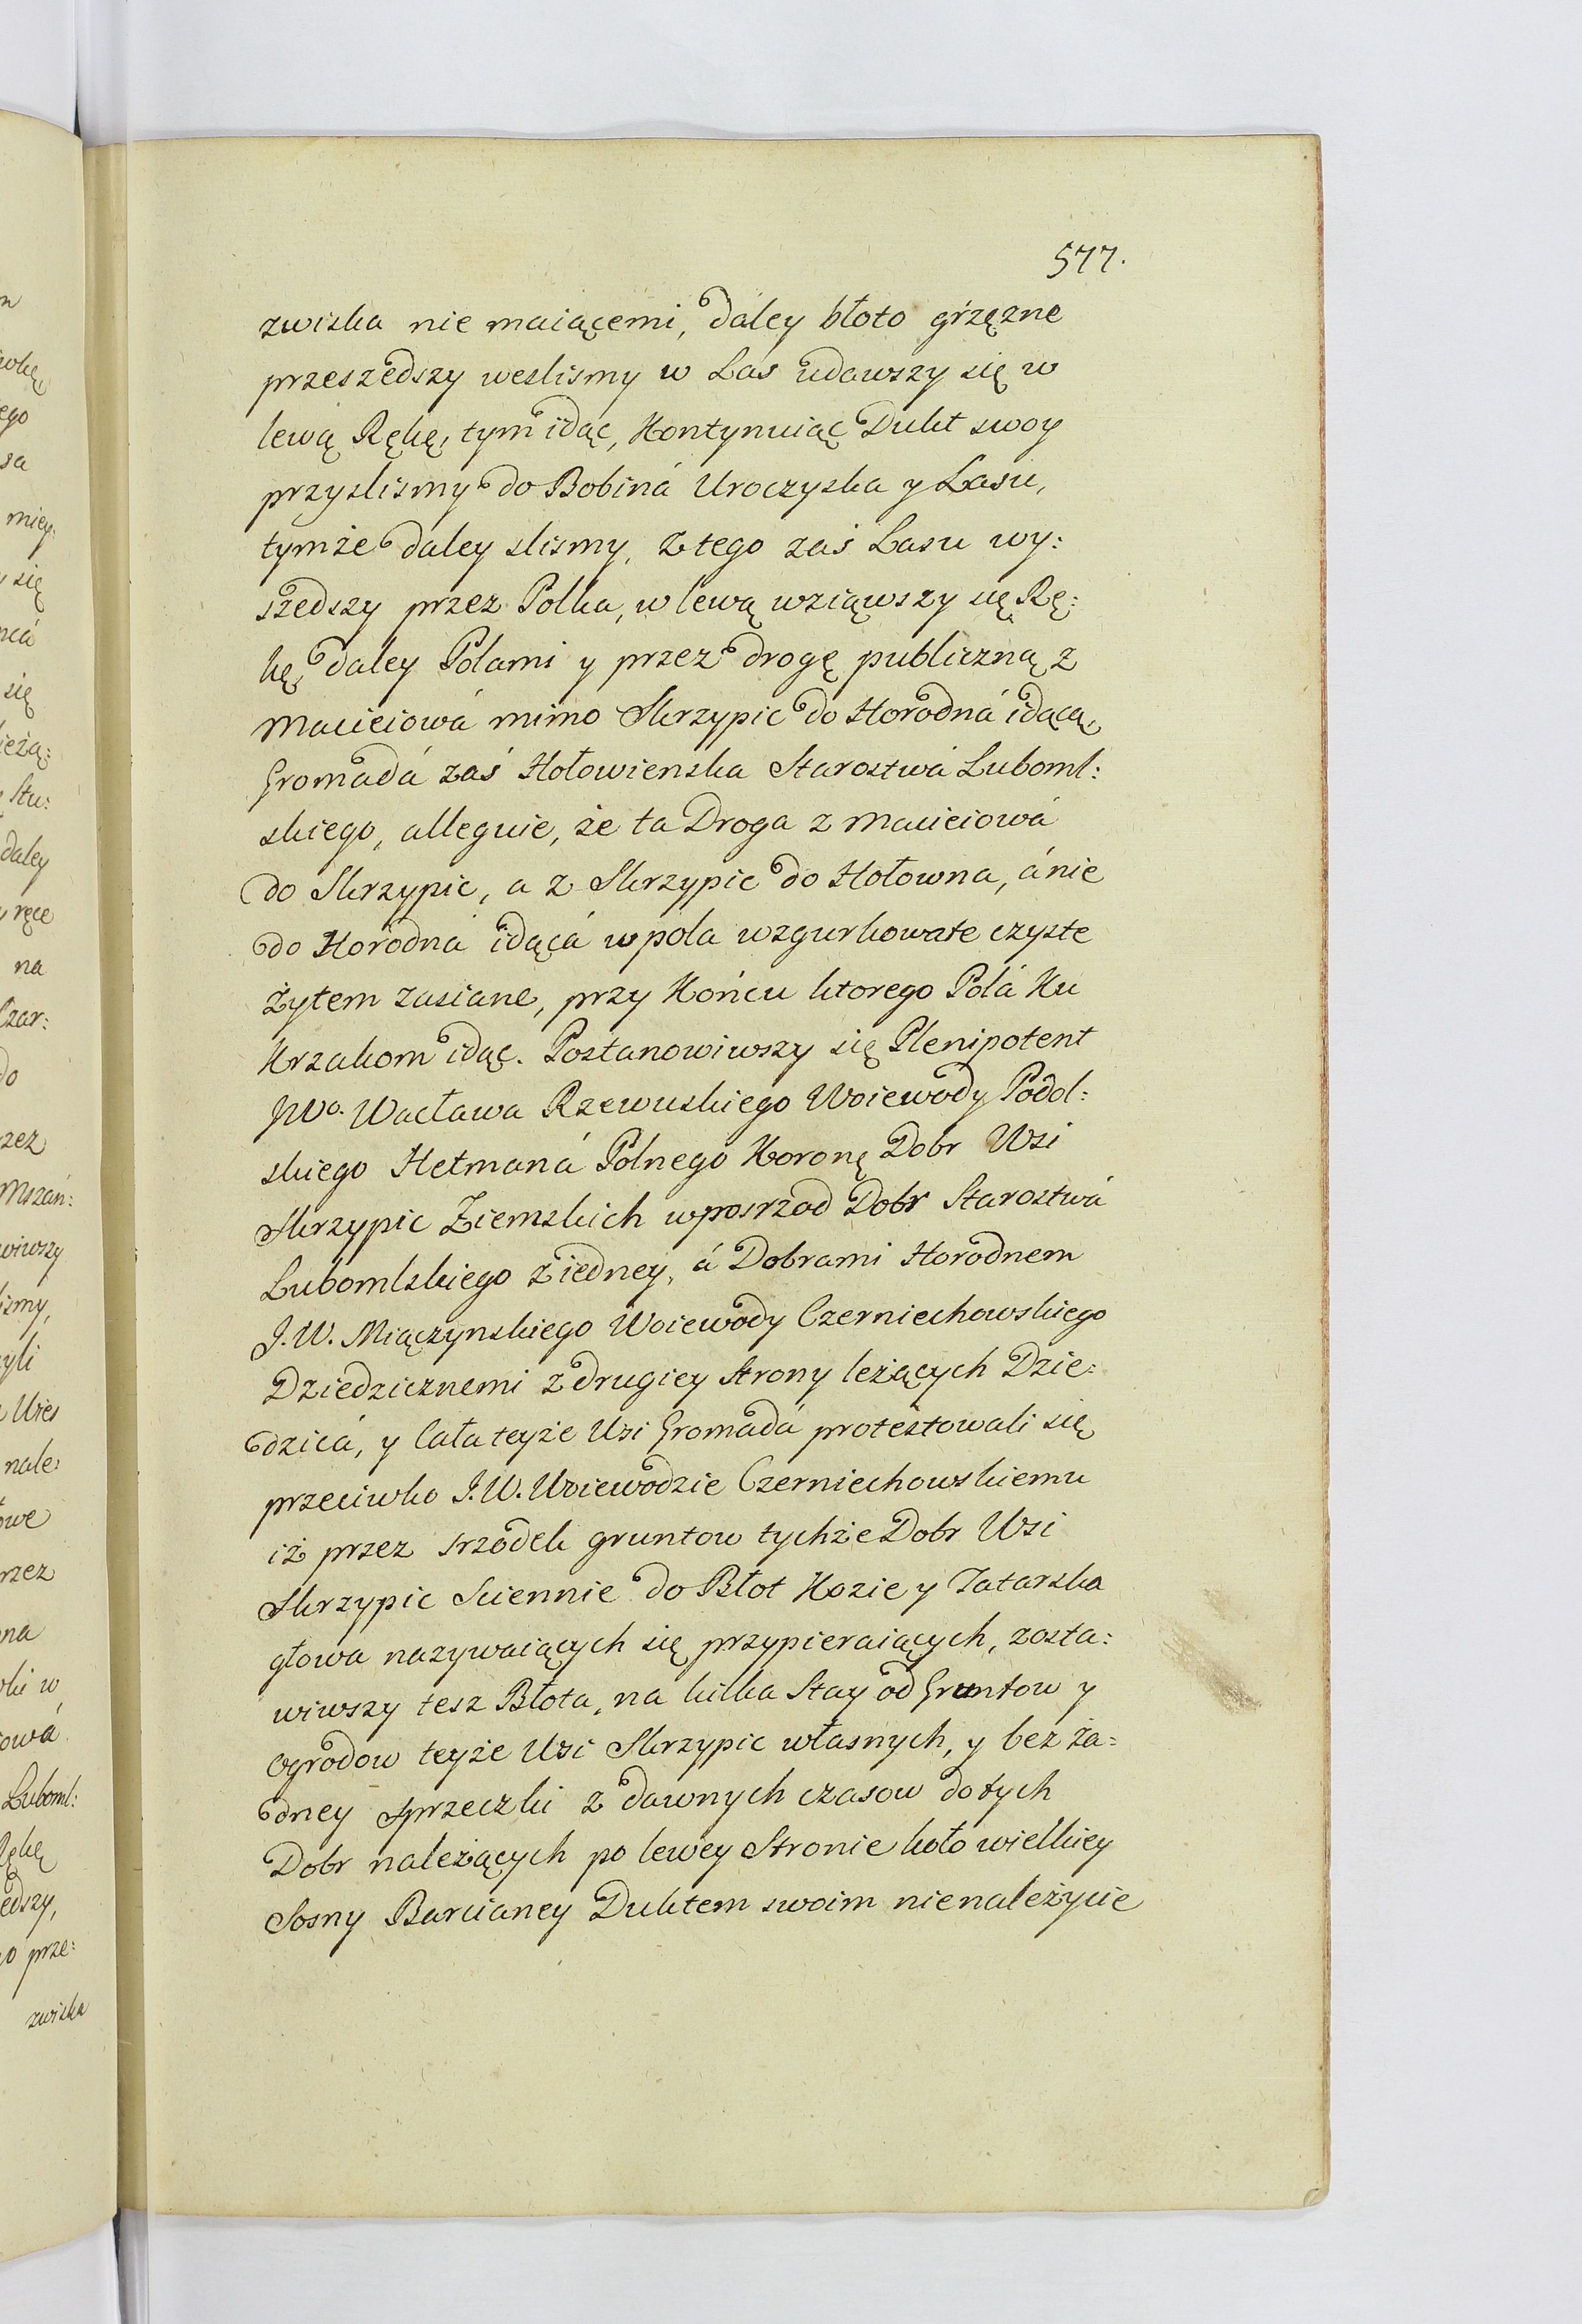 577.
zwiska nie maiącemi, daley błoto grzęzne
przeszedszy weslismy w Las udawszy się w
lewą Rękę, tym idąc, Kontynuiąc Dukt swoy
przyslismy do Bobiná Uroczyska y Lasu,
tymże daley slismy, z tego zaś Lasu wy:
szedszy przez Polka, w lewą wziąwszy się Rę:
kę, daley Polami y przez drogę publiczną z
Macieiowá mimo Skrzypic do Horodná idącą,
Gromadá zaś Hołowienska Starostwá Luboml:
skiego, alleguie, że ta Droga z Macieiowá
do Skrzypic, a z Skrzypic do Hołowna, á nie
do Horodná idącá w pola wzgurkowate czyste
Żytem zasiane, przy Końcu ktorego Polá Ku
Krzakom idąc. Postanowiwszy się Plenipotent
JWo. Wacława Rzewuskiego Woiewody Podol:
skiego Hetmaná Polnego Koronę Dobr Wsi
Skrzypic Ziemskich wposrzod Dobr Starostwá
Lubomlskiego z iedney, á Dobrami Horodnem
J. W. Miączynskiego Woiewody Czerniechowskiego
Dziedzicznemi z drugiey Strony leżących Dzie:
dzicá, y Cała teyże Wsi Gromadá protestowali się
przeciwko J. W. Woiewodzie Czerniechowskiemu
iż przez srzodek gruntow tychże Dobr Wsi
Skrzypic Sciennie do Błot Kozie y Tatarska
głowa nazywaiących się przypieraiących, zosta:
wiwszy tesz Błota, na kilka Stay od Gruntow y
ogrodow teyże Wsi Skrzypic własnych, y bez ża:
dney sprzeczki z dawnych czasow do tych
Dobr należących po lewey Stronie koło wielkiey
Sosny Barcianey Duktem swoim nienależycie
miey:
się
się
daley
ręce
na
Czar:
Mszań:
nale:
Luboml:
prze:
zwiska